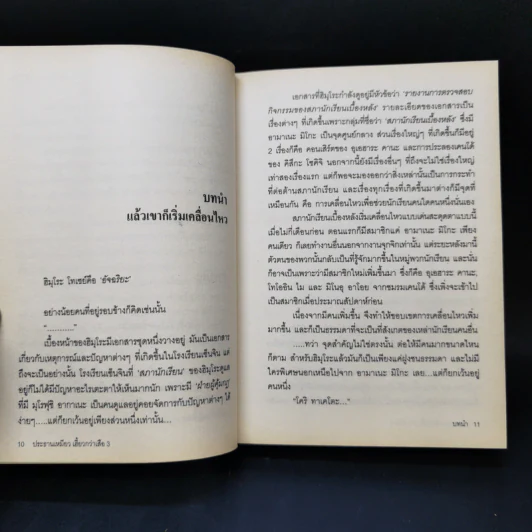 บทนำ
แล้วเขาก็เริ่มเคลื่อนไหว
ฮิมุโระ โทเซย์คือ 'อัจฉริยะ'
อย่างน้อยคนที่อยู่รอบข้างก็คิดเช่นนั้น
"..........."
เบื้องหน้าของฮิมุโระมีเอกสารชุดหนึ่งวางอยู่ มันเป็นเอกสาร
เกี่ยวกับเหตุการณ์และปัญหาต่างๆ ที่เกิดขึ้นในโรงเรียนเซ็นจิน แต่
ถึงจะเป็นอย่างนั้น โรงเรียนเซ็นจินที่ 'สภานักเรียน' ของฮิมุโระดูแล
อยู่ก็ไม่ได้มีปัญหาอะไรตะตาให้เห็นมากนัก เพราะมี 'ฝ่ายผู้คุ้มกฎ'
ที่มี มุโรฟุชิ อากาเนะ เป็นคนดูแลอยู่คอยจัดการกับปัญหาต่างๆ ได้
ง่ายๆ.....แต่ก็ยกเว้นอยู่เพียงส่วนหนึ่งเท่านั้น...
10 ประธานเหมียว เสี้ยวกว่าเสือ 3
เอกสารที่ฮิมุโระกำลังดูอยู่มีหัวข้อว่า 'รายงานการตรวจสอบ
กิจกรรมของสภานักเรียนเบื้องหลัง' รายละเอียดของเอกสารเป็น
เรื่องต่างๆ ที่เกิดขึ้นเพราะกลุ่มที่ชื่อว่า 'สภานักเรียนเบื้องหลัง' ซึ่งมี
อามาเนะ มิโกะ เป็นจุดศูนย์กลาง ส่วนเรื่องใหญ่ๆ ที่เกิดขึ้นก็มีอยู่
2 เรื่องก็คือ คอนเสิร์ตของ อุเอฮาระ คานะ และการประลองเคนโด้
ของ คิสึกะ โชคิจิ นอกจากนี้ยังมีเรื่องอื่นๆ ที่ถึงจะไม่ใช่เรื่องใหญ่
เท่าสองเรื่องแรก แต่ก็พอจะมองออกว่าสิ่งเหล่านั้นเป็นการกระทำ
ที่ต่อต้านสภานักเรียน และเรื่องทุกเรื่องที่เกิดขึ้นมาต่างก็มีจุดที่
เหมือนกัน คือ การเคลื่อนไหวเพื่อช่วยนักเรียนคนใดคนหนึ่งนั่นเอง
สภานักเรียนเบื้องหลังเริ่มเคลื่อนไหวแบบเด่นสะดุดตาแบบนี้
เมื่อไม่กี่เดือนก่อน ตอนแรกก็มีสมาชิกแค่ อามาเนะ มิโกะ เพียง
คนเดียว ก็เลยทำงานอื่นนอกจากงานจุกจิกเท่านั้น แต่ระยะหลังมานี้
ตัวตนของพวกนั้นกลับเป็นที่รู้จักมากขึ้นในหมู่พวกนักเรียน และนั่น
ก็อาจเป็นเพราะว่ามีสมาชิกใหม่เพิ่มขึ้นมา ซึ่งก็คือ อุเอฮาระ คานะ,
โทโออิน ไม และ มิโนอุ อาโอย จากชมรมเคนโด้ ซึ่งเพิ่งจะเข้าไป
เป็นสมาชิกเมื่อประมาณสัปดาห์ก่อน
เนื่องจากมีคนเพิ่มขึ้น จึงทำให้ขอบเขตการเคลื่อนไหวเพิ่ม
มากขึ้น และก็เป็นธรรมดาที่จะเป็นที่สังเกตของเหล่านักเรียนคนอื่น
.....ทว่า จุดสำคัญไม่ใช่ตรงนั้น ต่อให้มีคนมากขนาดไหน
ก็ตาม สำหรับฮิมุโระแล้วมันก็เป็นเพียงแค่ฝูงชนธรรมดา และไม่มี
ใครพิเศษนอกเหนือไปจาก อามาเนะ มิโกะ เลย...แต่ก็ยกเว้นอยู่
คนหนึ่ง
"โคริ ทาเคโตะ..."
บทนำ 11